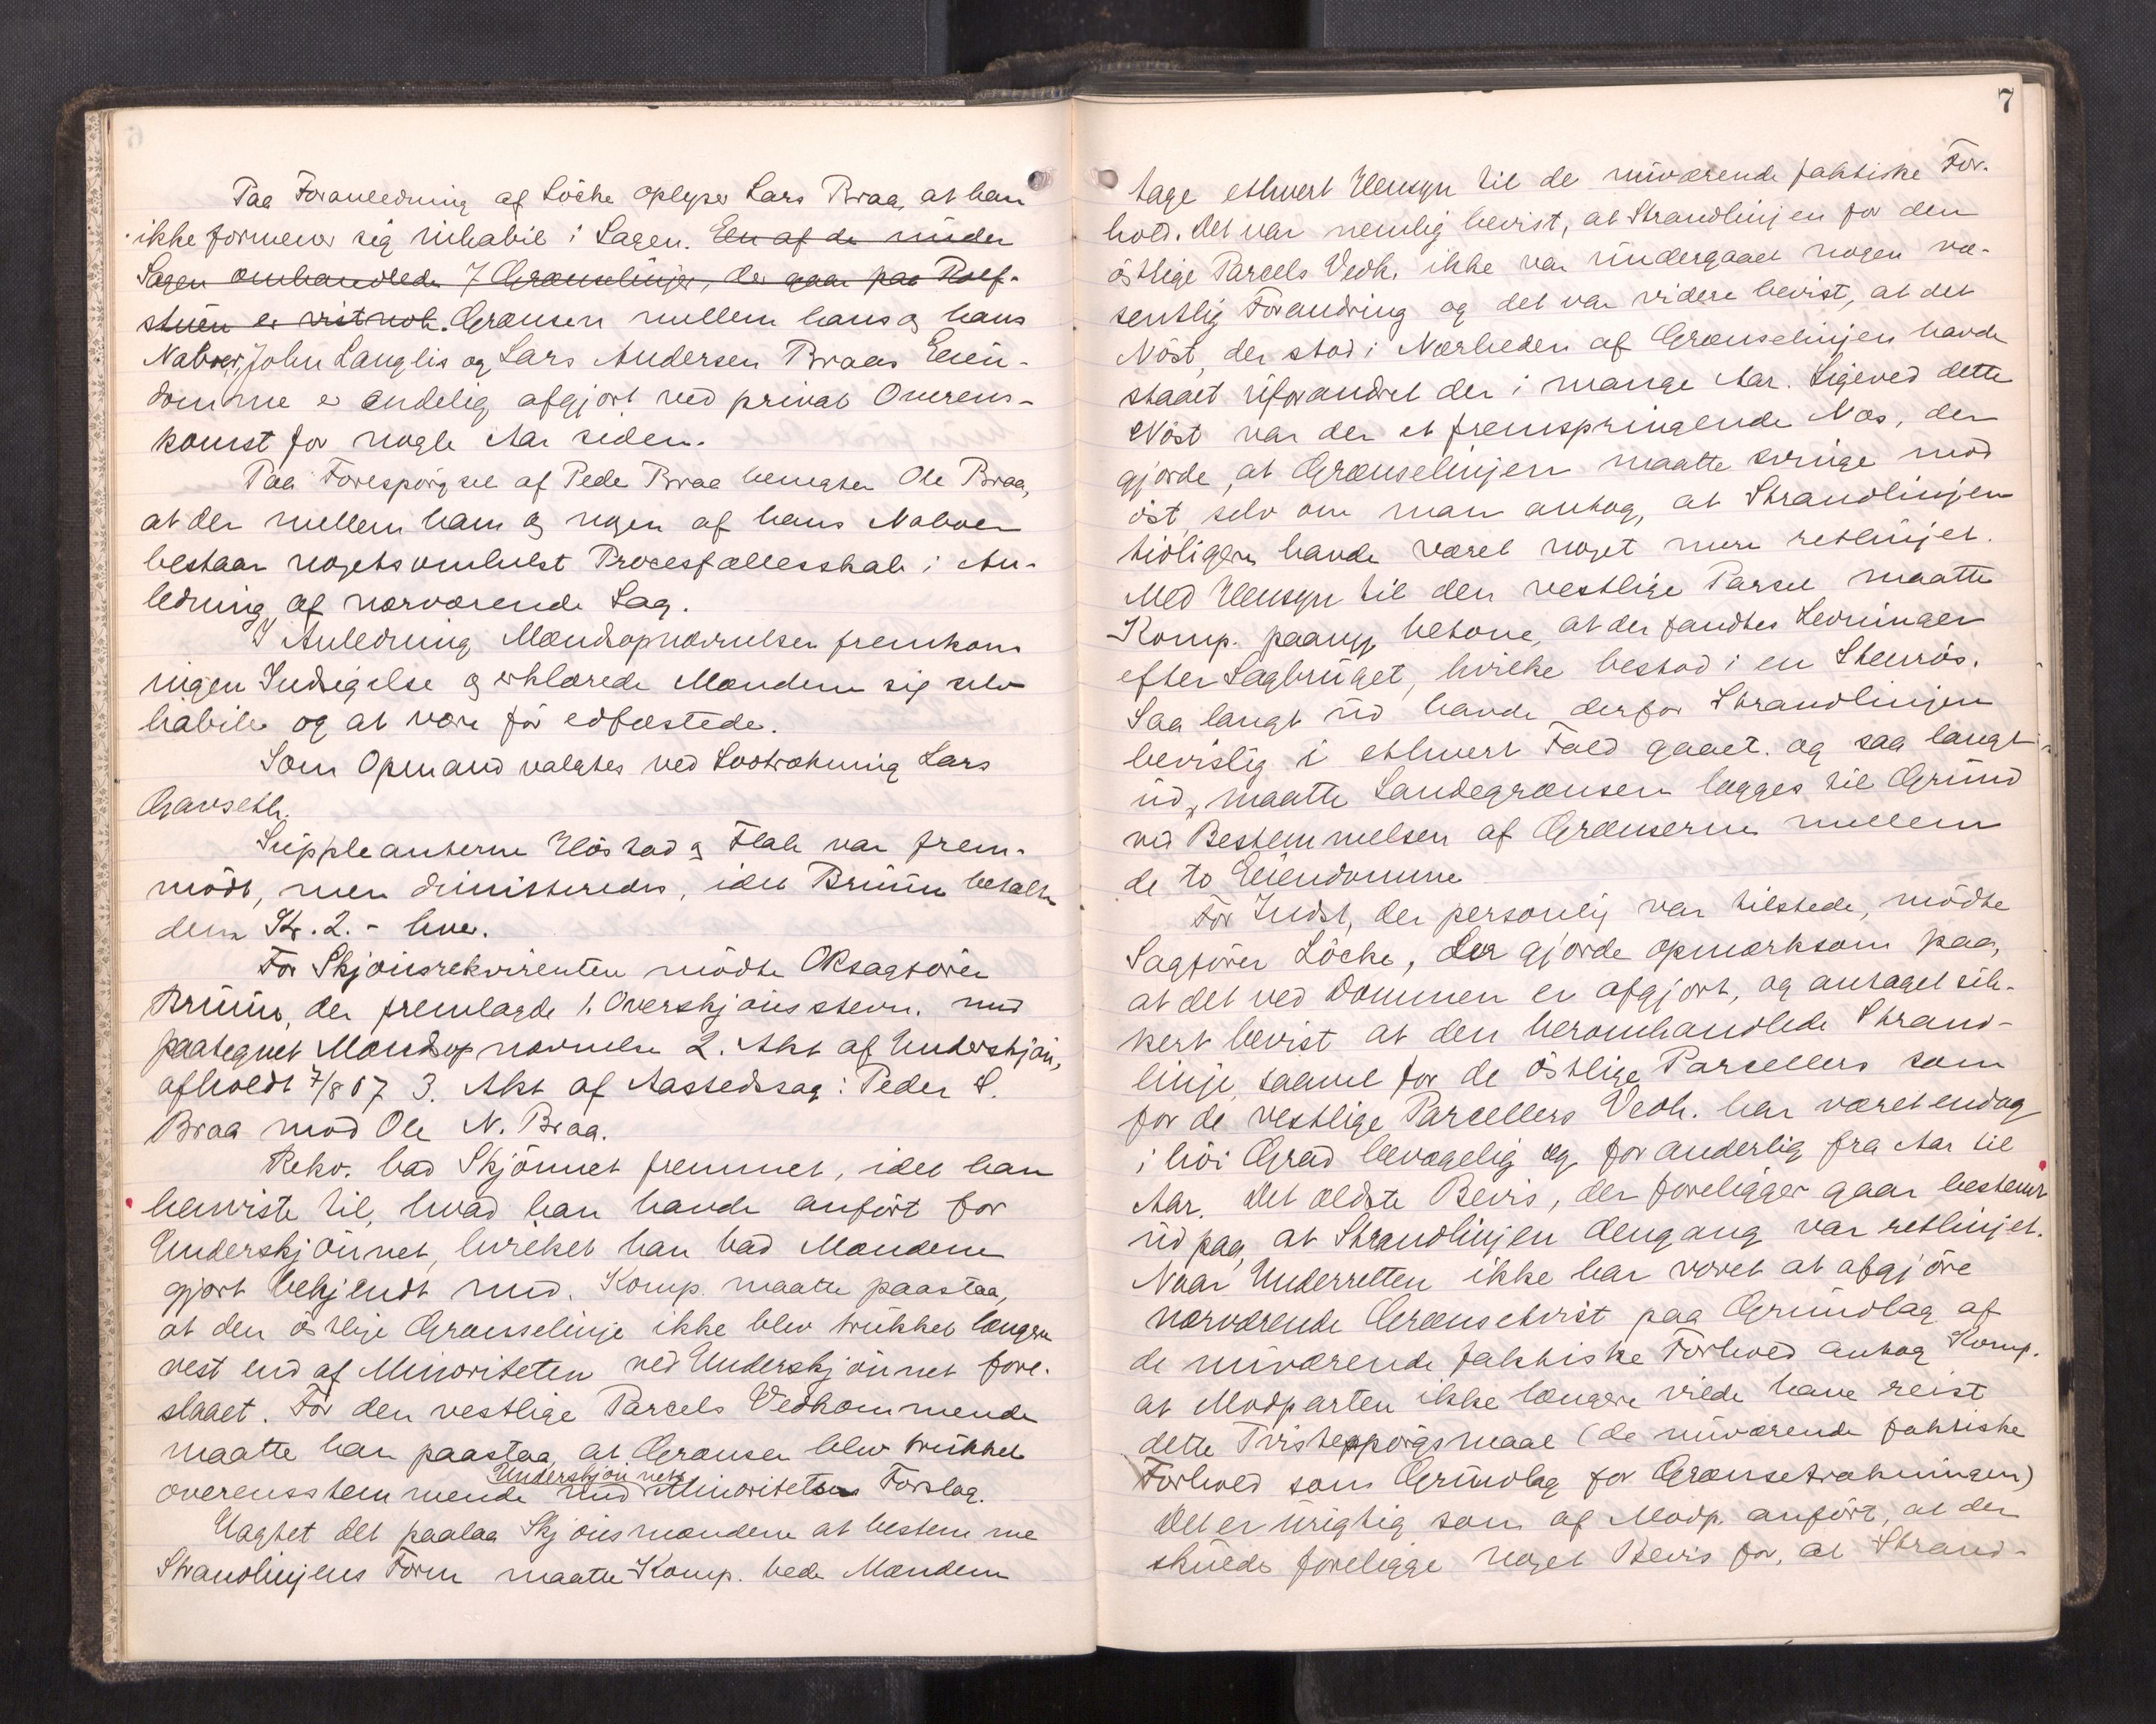 Paa Foranledning af Löcke oplyser Lars Braa, at han
ikke formener sig inhabil i Sagen. En af de under
Sagen omhandlede 7 Grænselinjer, der gaar paa
er vistnok. Grænsen mellem hans og hans
Naboer, John Langlis og Lars Andersen Braas Eien-
domme er endelig afgjort ved privat Overens-
komst for nogle Aar siden.
Paa Forespörgsel af Peder Braa benegter Ole Braa,
at der mellem ham og nogen af hans Naboer
bestaar nogetsomhelst Procesfællesskab i An-
ledning af nærværende Sag.
I Anledning Mændsopnævnelsen fremkom
ingen Indsigelse og erklærede Mændene sig selv
habile og at være för edfæstede.
Som Opmand valgtes ved Lodtrækning Lars
Gravseth.
Suppleanterne Höstad og Flak var frem-
mödt, men dimitteredes, idet Bruun betalte
dem Kr. 2.- hver.
For Skjönsrekvirenten mödte ORsagförer
Bruun, der fremlagde 1. Overskjönsstevn. med
paategnet Mændsopnævnelse 2. Akt af Underskjön,
afholdt 7/8 07 3. Akt af Aastedssag: Peder L.
Braa mod Ole N. Braa.
Rekv. bad Skjönnet fremmet, idet han
henviste til, hvad han havde anfört for
Underskjönnet, hvilket han bad Mændene
gjort bekjendt med. Komp. maatte paastaa,
at den östlige Grænselinje ikke blev trukket længere
vest end af Minoriteten ved Underskjönnet fore-
slaaet. For den vestlige Parcels Vedkommende
maatte han paastaa, at Grænsen blev trukket
Underskjönnets
overensstemmende med Minoritetens Forslag.
Uagtet det paalaa Skjönsmændene at bestemme
Strandlinjens Form maatte Komp. bede Mændene
7
tage ethvert Hensyn til de nuværende faktiske For-
hold. Det var nemlig bevist, at Strandlinjen for den
östlige Parcels Vedk. ikke var undergaaet nogen væ-
sentlig Forandring og det var videre bevist, at det
Nöst, der stod i Nærheden af Grænselinjen havde
staaet uforandret der i mange Aar. Ligeved dette
Nöst var der et fremspringende Næs, der
gjorde, at Grænselinjen maatte svinge mod
öst, selv om man antog, at Strandlinjen
tidligere havde været noget mere retlinjet.
Med Hensyn til den vestlige Parcel maatte
Komp. paany betone, at der fandtes Levninger
efter Sagbruget, hvilke bestod i en Stenrös.
Saa langt ud havde derfor Strandlinjen
bevislig i ethvert Fald gaaet. og saa langt
ud, maatte Landegrænsen lægges til Grund
ved Bestemmelsen af Grænserne mellem
de to Eiendomme
For Indst, der personlig var tilstede, mödte
Sagförer Löcke, der gjorde opmærksom paa,
at det ved Dommen er afgjort, og antaget sik-
kert bevist at den heromhandlede Strand-
linje, saavel for de östlige Parcellers som
for de vestlige Parcellers Vedk. har været endog
i höi Grad bevægelig og foranderlig fra Aar til
Aar. Det ældste Bevis, der foreligger gaar bestemt
ud paa, at Strandlinjen dengang var retlinjet.
Naar Underretten ikke har vovet at afgjöre
nærværende Grænsetvist paa Grundlag af
de nuværende faktiske Forhold antog Komp.
at Modparten ikke længere vilde have reist
dette Tvistespörgsmaal (de nuværende faktiske
Forhold som Grundlag for Grænsetrækningen)
Det er urigtig som af Modp. anfört, at der
skulde foreligge noget Bevis for, at Strand-